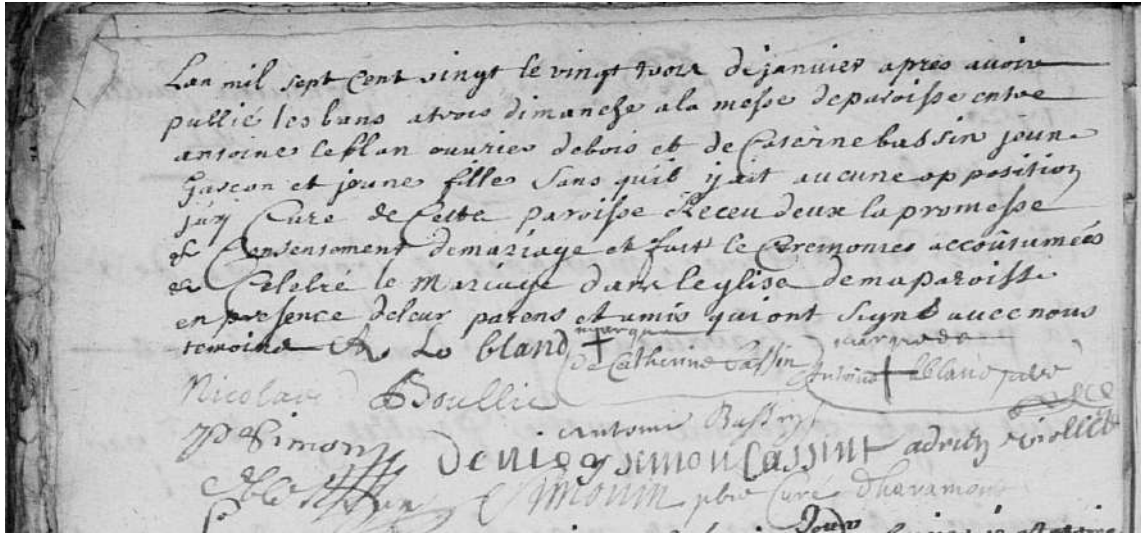 Lan mil sept cent vingt le vingt trois de janvier apres avoir
publié les bans a trois dimanche a la messe de paroisse entre
antoine leblan ouvrier de bois et de Caterine bassin jeune
Garcon et jeune fille Sans quil y ait aucune opposition
Curé de Cette paroisse Receu deux la promesse
et Consentement de mariage et fait le Ceremonies accoutumées
et Celebré le Mariage dans leglise de ma paroisse
en presence de leur parens et amis qui ont Signé avec nous
temoins Le bland marque
de Catherine bassin marque de
antoine leblanc
Nicolas Boullie
Simon antoine
denis simon Cassint adrien
Simonin pbre Curé dharamont